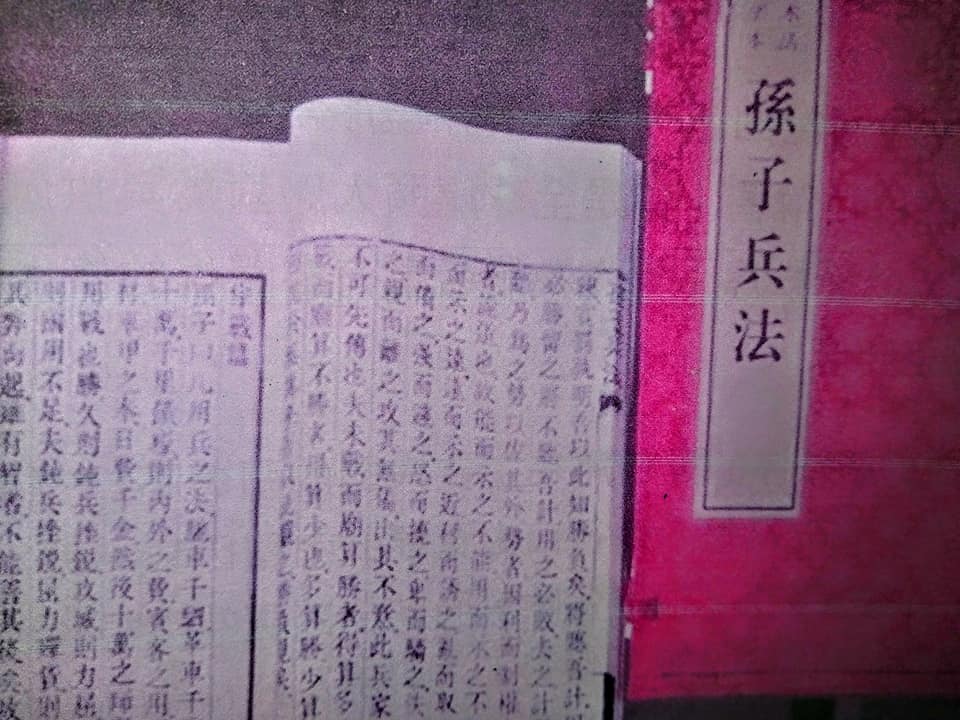 孫子兵法
罰孰明吾以此知勝負矣將聽吾計
必勝留之將不聽吾計用之必敗去之計
乃爲之勢以佐其外勢者因利而制權
者詭道也故能而示之不能用而示之不
而示之遠遠而示之近利而誘之亂而取
而備之強而避之怒而撓之卑而驕之佚
之親而離之攻其無備出其不意此兵家
不可先傳也夫未戰而廟算勝者得算多
廟算不勝者得算少也多算勝少算
觀之勝負見矣
作戰篇
孫子曰凡用兵之法馳車千駟革車千
十萬千里饋糧則內外之費賓客之用
材車甲之奉日費千金然後十萬之師
用戰也勝久則鈍兵挫銳攻城則力屈
則國用不足夫鈍兵挫銳屈力殫貨則
其弊而起雖有智者不能善其後矣故